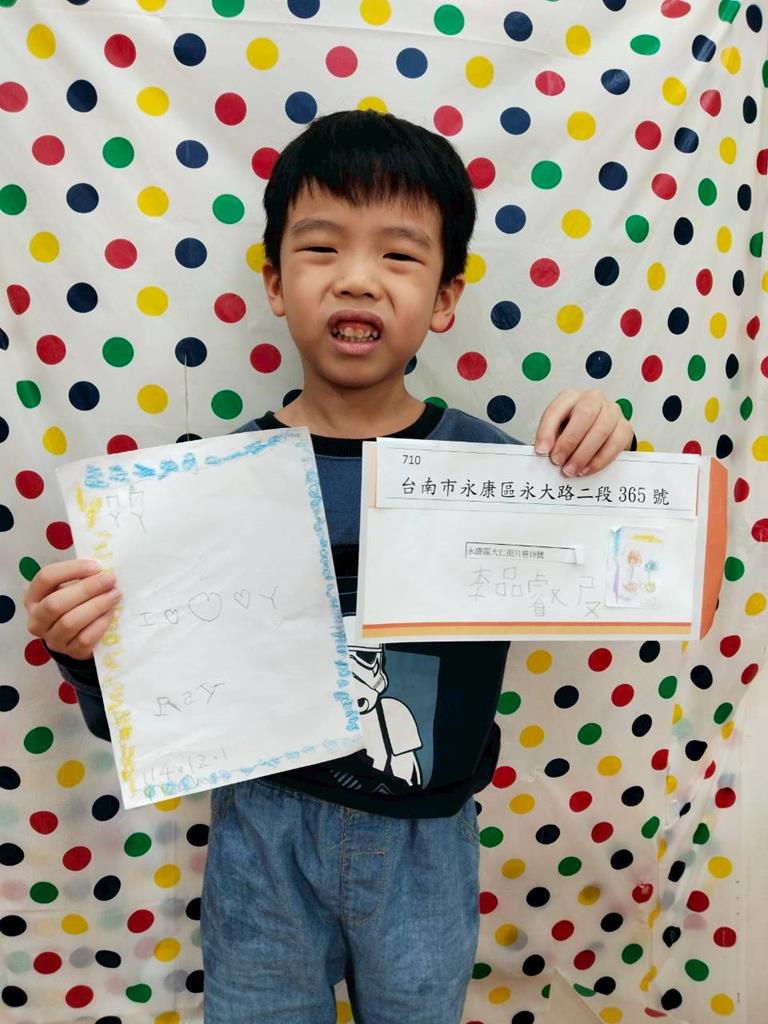 I ♡ ♡ ♡ Y
Ray
114.12.1
710
台南市永康區永大路二段 365 號
永康區大仁街31巷18號
李品睿